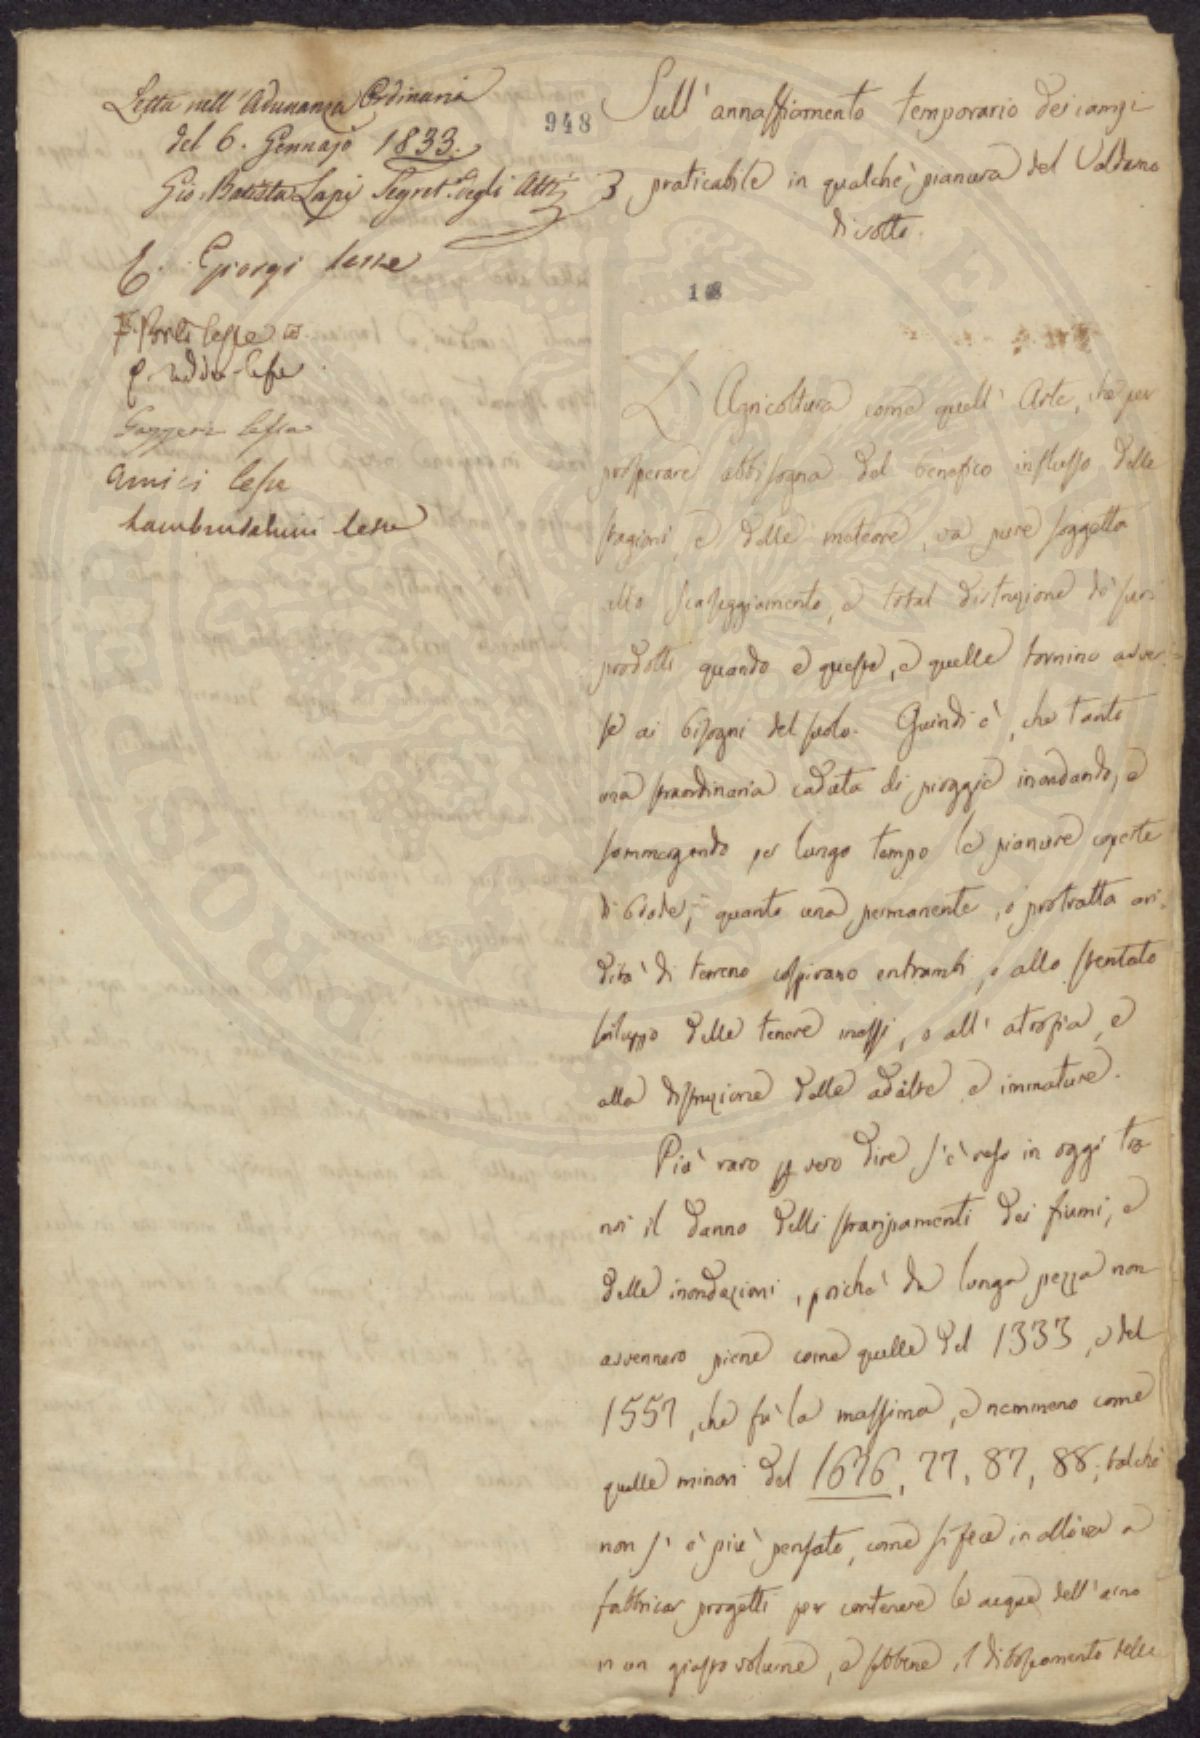 Letta nell'Adunanza Ordinaria
del 6. Gennajo 1833.
Gio. Batista Lapi Segret. degli Atti
E. Giorgi lesse
lesse
lesse
Gazzeri lesse
Amici lesse
Lambruschini lesse
948
Sull'annaffiamento temporario dei campi
praticabile in qualche pianura del Valdarno
di sotto.
L'Agricoltura come quell'Arte, che per
prosperare abbisogna del benefico influsso delle
stagioni, e delle meteore, va pure soggetta
allo scaseggiamento, e total distruzione de' suoi
prodotti quando e queste, e quelle tornino avver=
se ai bisogni del suolo. Quindi è, che tanto
una straordinaria caduta di pioggie inondando, e
sommergendo per lungo tempo le pianure coperte
di biade, quanto una permanente, e protratta ari=
dità di terreno cospirano entrambi, o allo stentato
sviluppo delle tenere messi, o all'atrofia, e
alla distruzione delle adulte e immature.
Più raro per vero dire s'è reso in oggi tra
noi il danno delli straripamenti dei fiumi, e
delle inondazioni, poichè da lunga pezza non
avvennero piene come quelle del 1333, e del
1557, che fù la massima, e nemmeno come
quelle minori del 1676, 77, 87, 88; talchè
non si è più pensato, come si fece in allora a
fabbricar progetti per contenere le acque dell'arno
in un giusto volume, e sebbene il diboscamento delle
PROSPERITATI